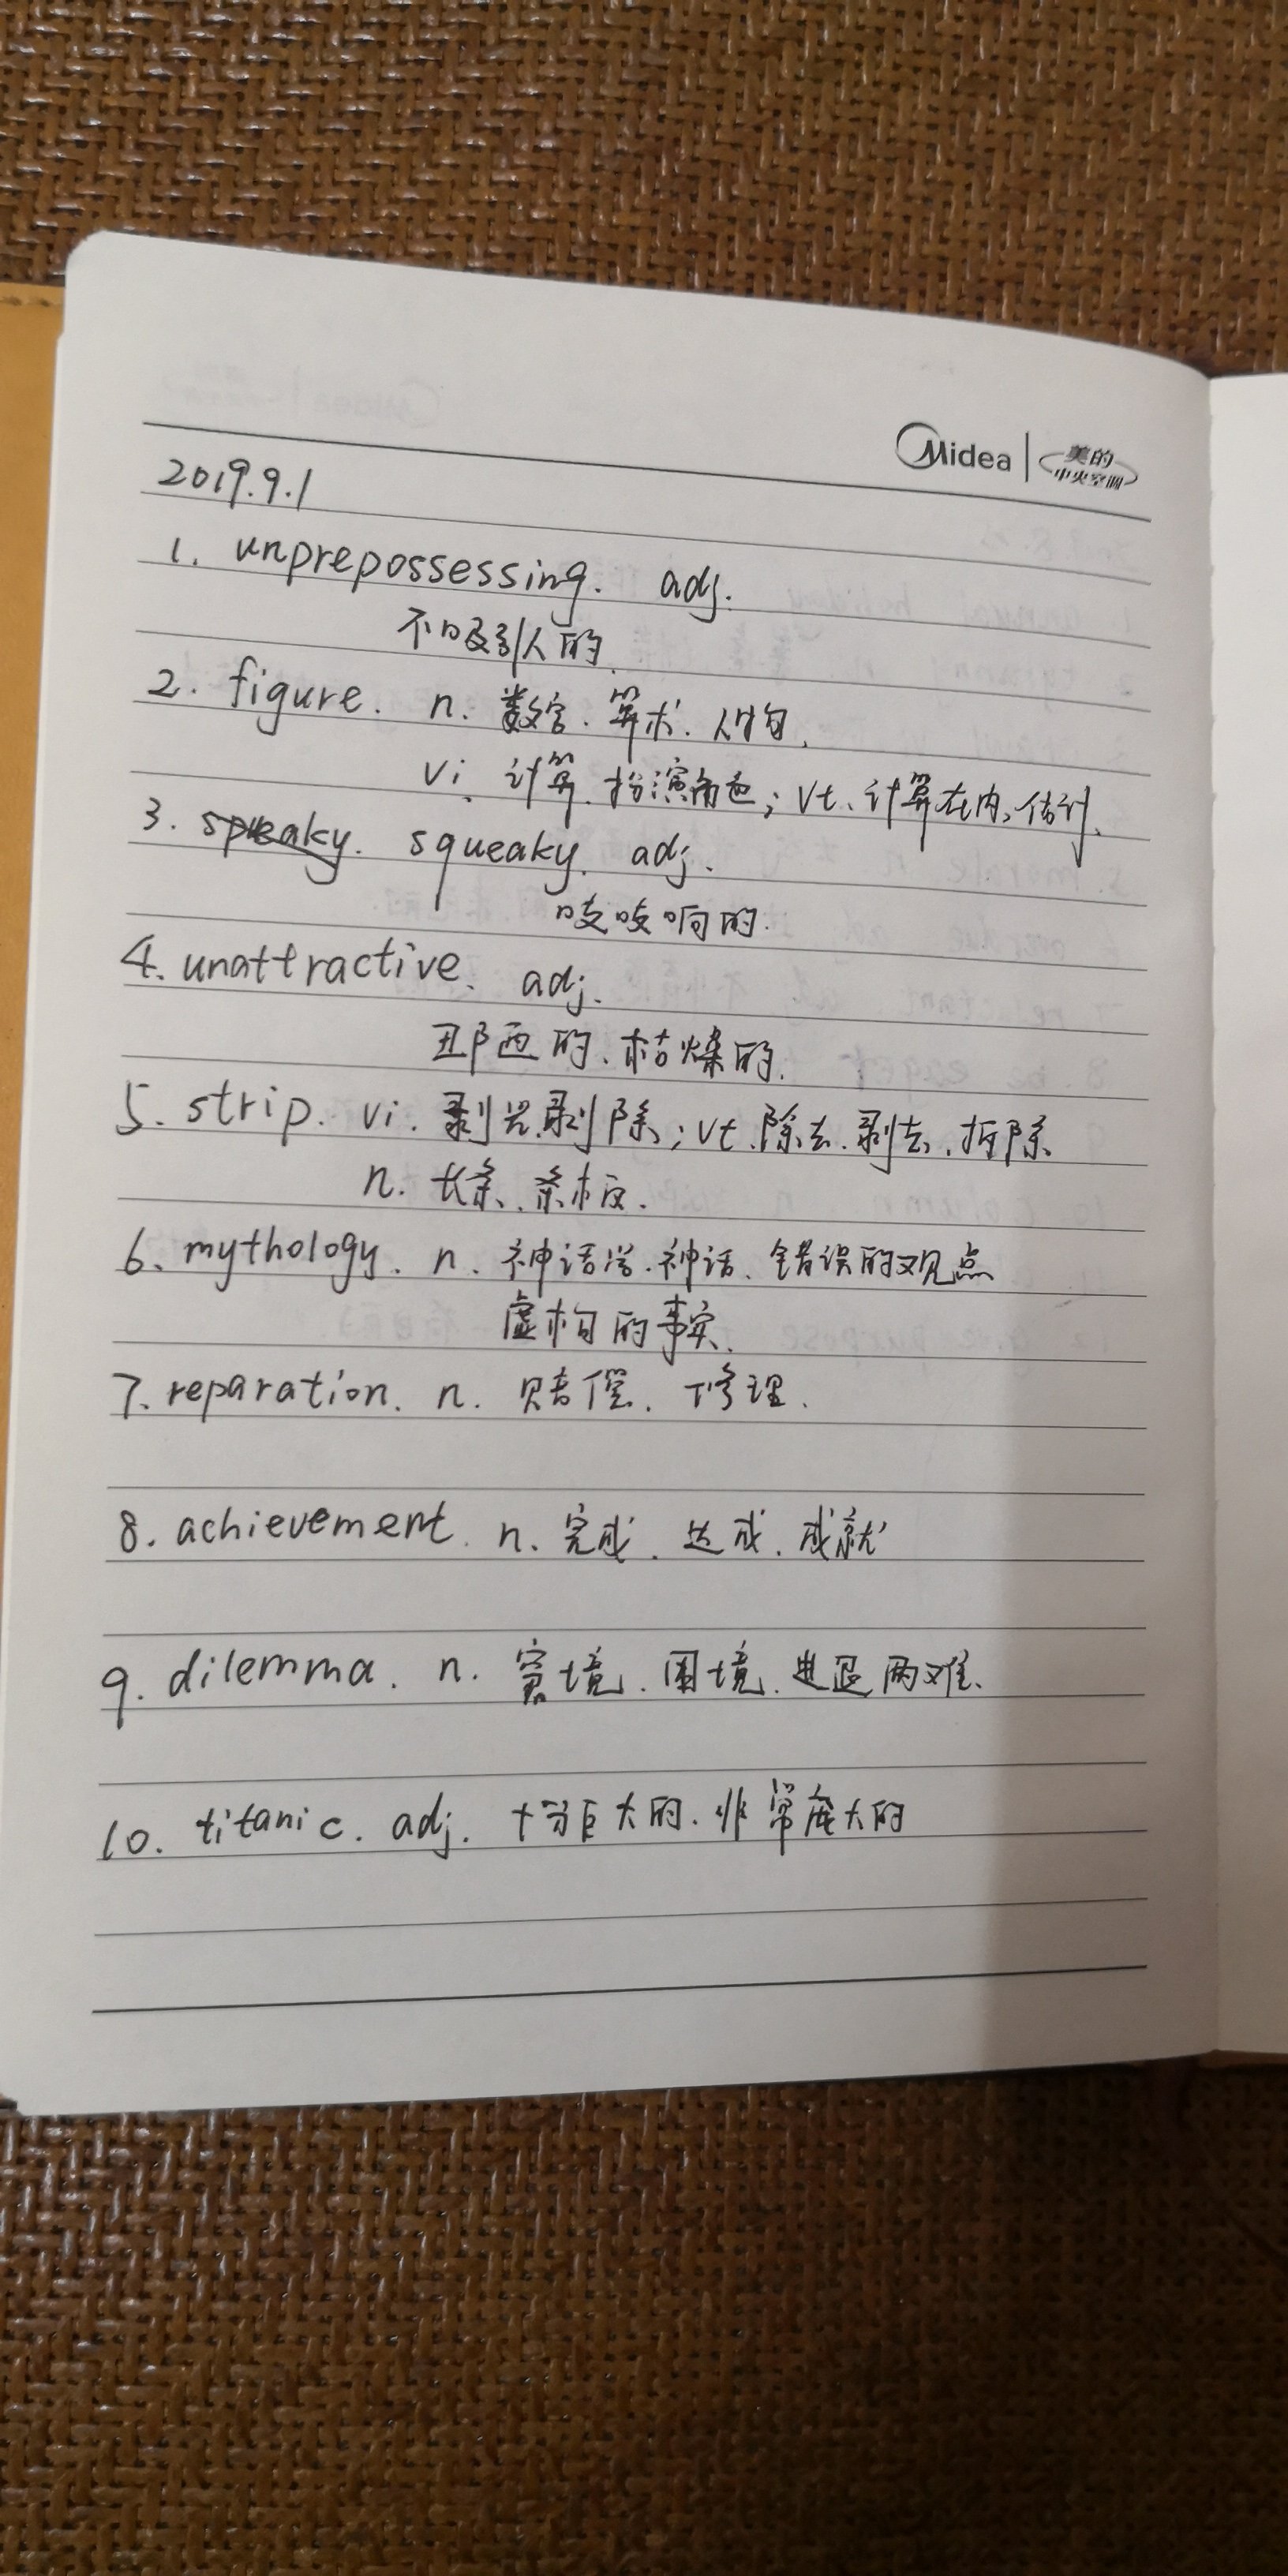 Midea 美的 中央空调
2019.9.1
1. unprepossessing. adj.
不吸引人的.
2. figure. n. 数字. 算术. 人物.
vi. 计算. 扮演角色; vt. 计算在内. 估计.
3. squeaky. adj.
吱吱响的.
4. unattractive. adj.
丑陋的. 枯燥的.
5. strip. vi. 剥光. 剥除; vt. 除去. 剥去. 拆除
n. 长条. 条板.
6. mythology. n. 神话学. 神话. 错误的观点
虚构的事实.
7. reparation. n. 赔偿. 修理.
8. achievement. n. 完成. 达成. 成就
9. dilemma. n. 窘境. 困境. 进退两难.
10. titanic. adj. 十分巨大的. 非常庞大的